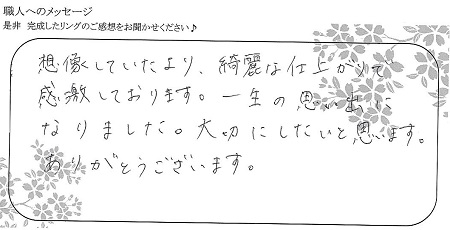 職人へのメッセージ
是非 完成したリングのご感想をお聞かせください♪
想像していたより、綺麗な仕上がりで
感激しております。一生の思い出に
なりました。大切にしたいと思います。
ありがとうございます。